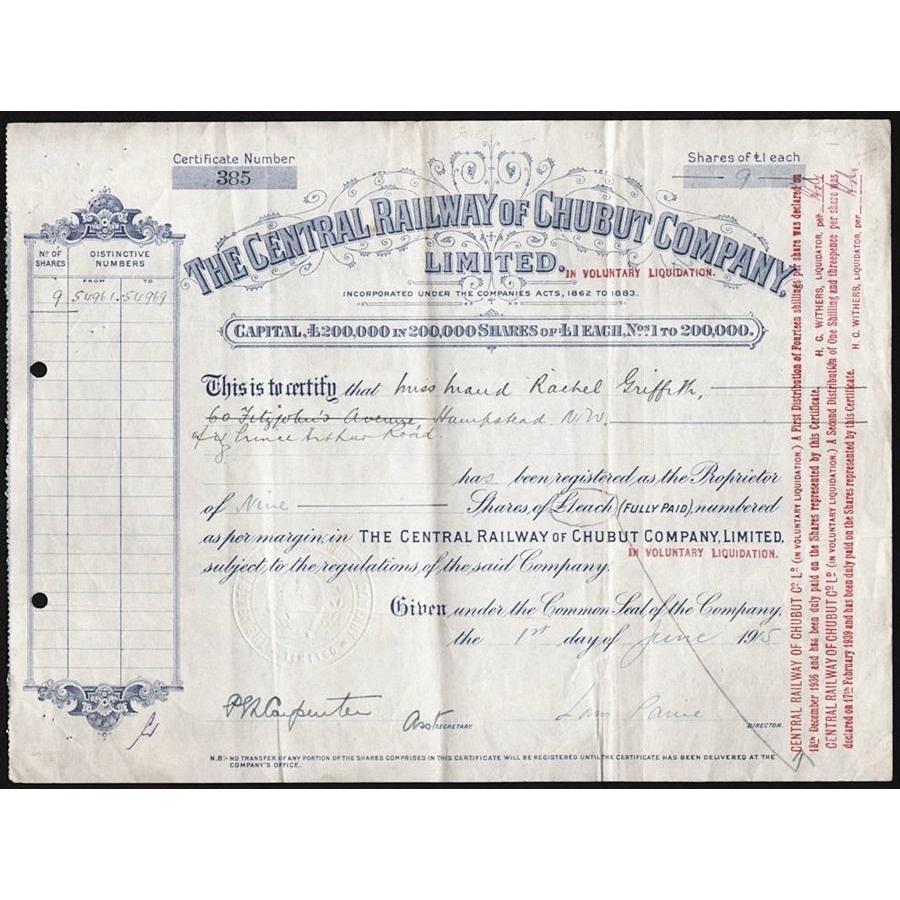 Certificate Number
385
Shares of £1 each
9
THE CENTRAL RAILWAY OF CHUBUT COMPANY,
LIMITED.
IN VOLUNTARY LIQUIDATION.
INCORPORATED UNDER THE COMPANIES ACTS, 1862 TO 1883.
CAPITAL, £200,000 IN 200,000 SHARES OF £1 EACH, Nos 1 TO 200,000.
No OF SHARES
DISTINCTIVE NUMBERS
FROM TO
9 54961 . 54969
This is to certify that Miss Maud Rachel Griffith,
60 Fitzjohn's Avenue, Hampstead N.W.
of Prince Arthur Road.
has been registered as the Proprietor
of Nine Shares, of £1 each (FULLY PAID), numbered
as per margin, in THE CENTRAL RAILWAY OF CHUBUT COMPANY, LIMITED,
IN VOLUNTARY LIQUIDATION.
subject to the regulations of the said Company.
Given under the Common Seal of the Company,
the 1st day of June 1915
Carpenter
Asst SECRETARY.
DIRECTOR.
N.B:- NO TRANSFER OF ANY PORTION OF THE SHARES COMPRISED IN THIS CERTIFICATE WILL BE REGISTERED UNTIL THE CERTIFICATE HAS BEEN DELIVERED AT THE
COMPANY'S OFFICE.
CENTRAL RAILWAY OF CHUBUT CO. LD (IN VOLUNTARY LIQUIDATION.) A First Distribution of Fourteen shillings per share was declared on
18th December 1936 and has been duly paid on the Shares represented by this Certificate. H. C. WITHERS, LIQUIDATOR, per
CENTRAL RAILWAY OF CHUBUT CO. LD (IN VOLUNTARY LIQUIDATION.) A Second Distribution of One Shilling and threepence per share was
declared on 17th February 1939 and has been duly paid on the Shares represented by this Certificate. H. C. WITHERS, LIQUIDATOR, per